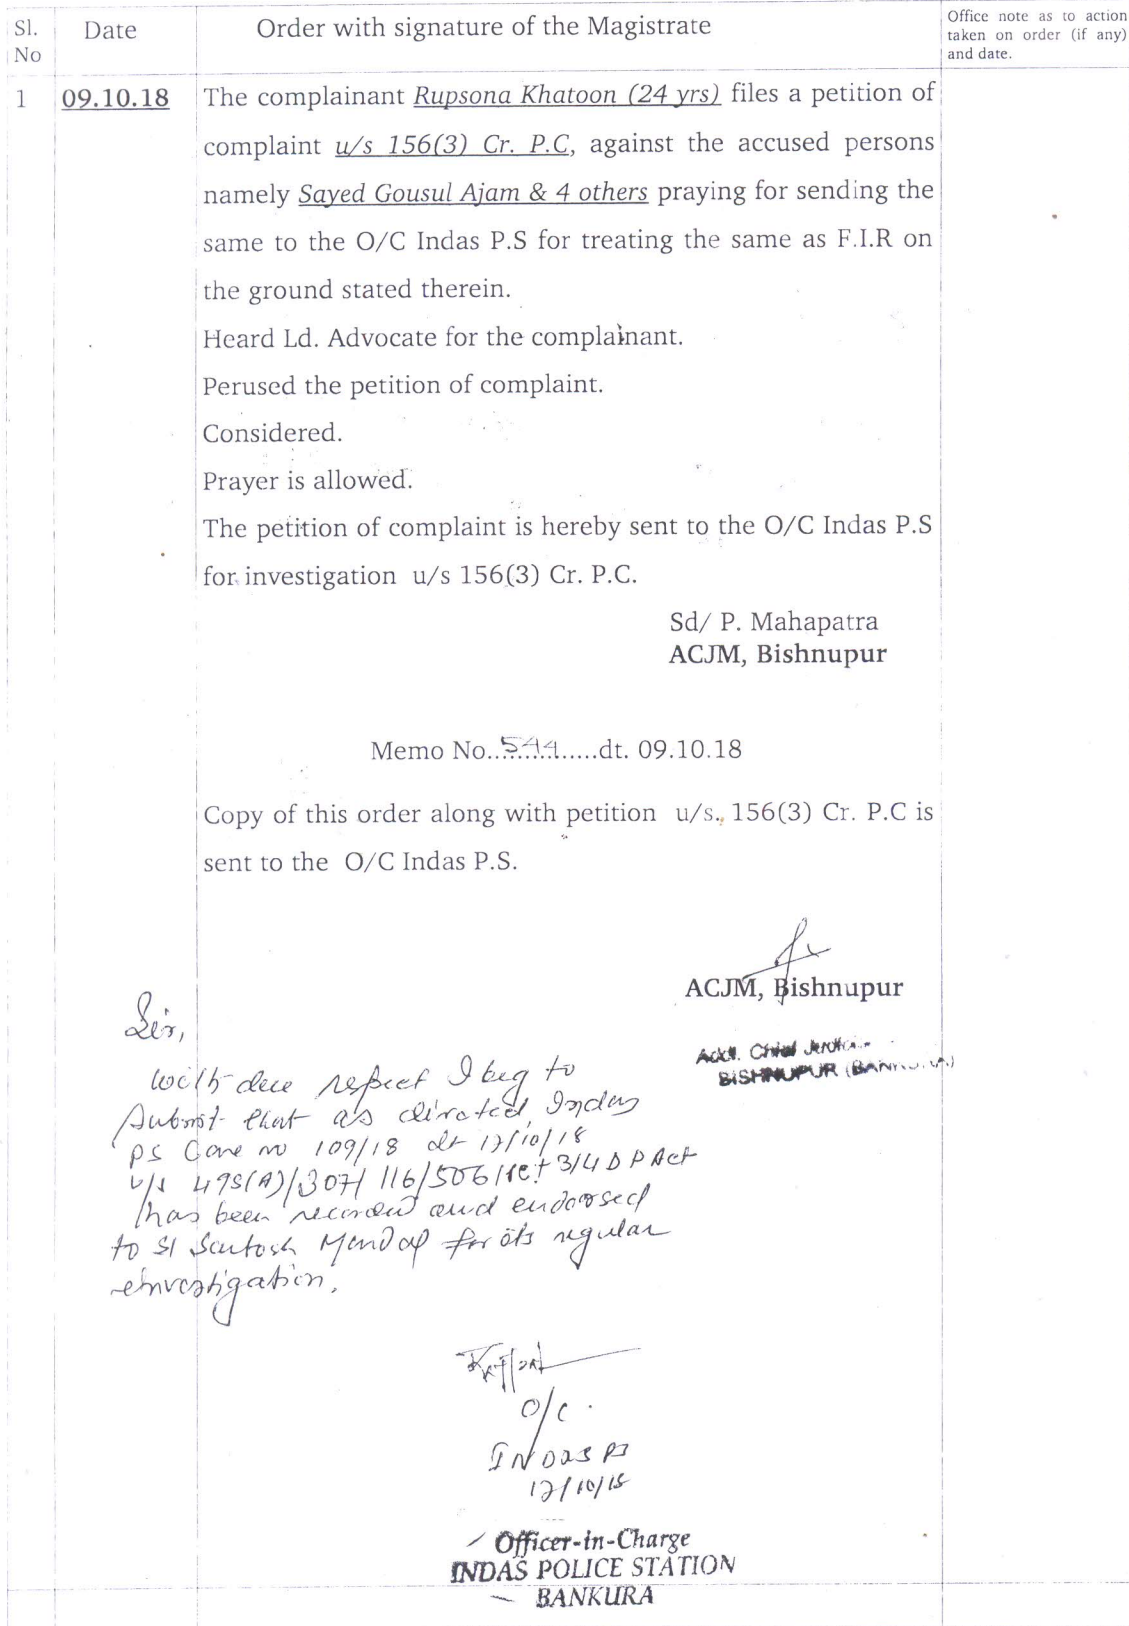 Sl. No
Date
Order with signature of the Magistrate
Office note as to action
taken on order (if any)
and date.
1
09.10.18
The complainant Rupsona Khatoon (24 yrs) files a petition of
complaint u/s 156(3) Cr. P.C, against the accused persons
namely Sayed Gousul Ajam & 4 others praying for sending the
same to the O/C Indas P.S for treating the same as F.I.R on
the ground stated therein.
Heard Ld. Advocate for the complainant.
Perused the petition of complaint.
Considered.
Prayer is allowed.
The petition of complaint is hereby sent to the O/C Indas P.S
for investigation u/s 156(3) Cr. P.C.
Sd/ P. Mahapatra
ACJM, Bishnupur
Memo No..544.....dt. 09.10.18
Copy of this order along with petition u/s. 156(3) Cr. P.C is
sent to the O/C Indas P.S.
ACJM, Bishnupur
Addl. Chief
BISHNUPUR (BANKURA)
Sir,
With due respect I beg to
Submit that as directed, Indas
PS Case no 109/18 dt 17/10/18
u/s 498(A)/307/116/506/ 3/4 D P Act
has been recorded and endorsed
to SI Santosh Mondal for its regular
investigation.
O/C.
INDAS PS
17/10/18
Officer-in-Charge
INDAS POLICE STATION
BANKURA